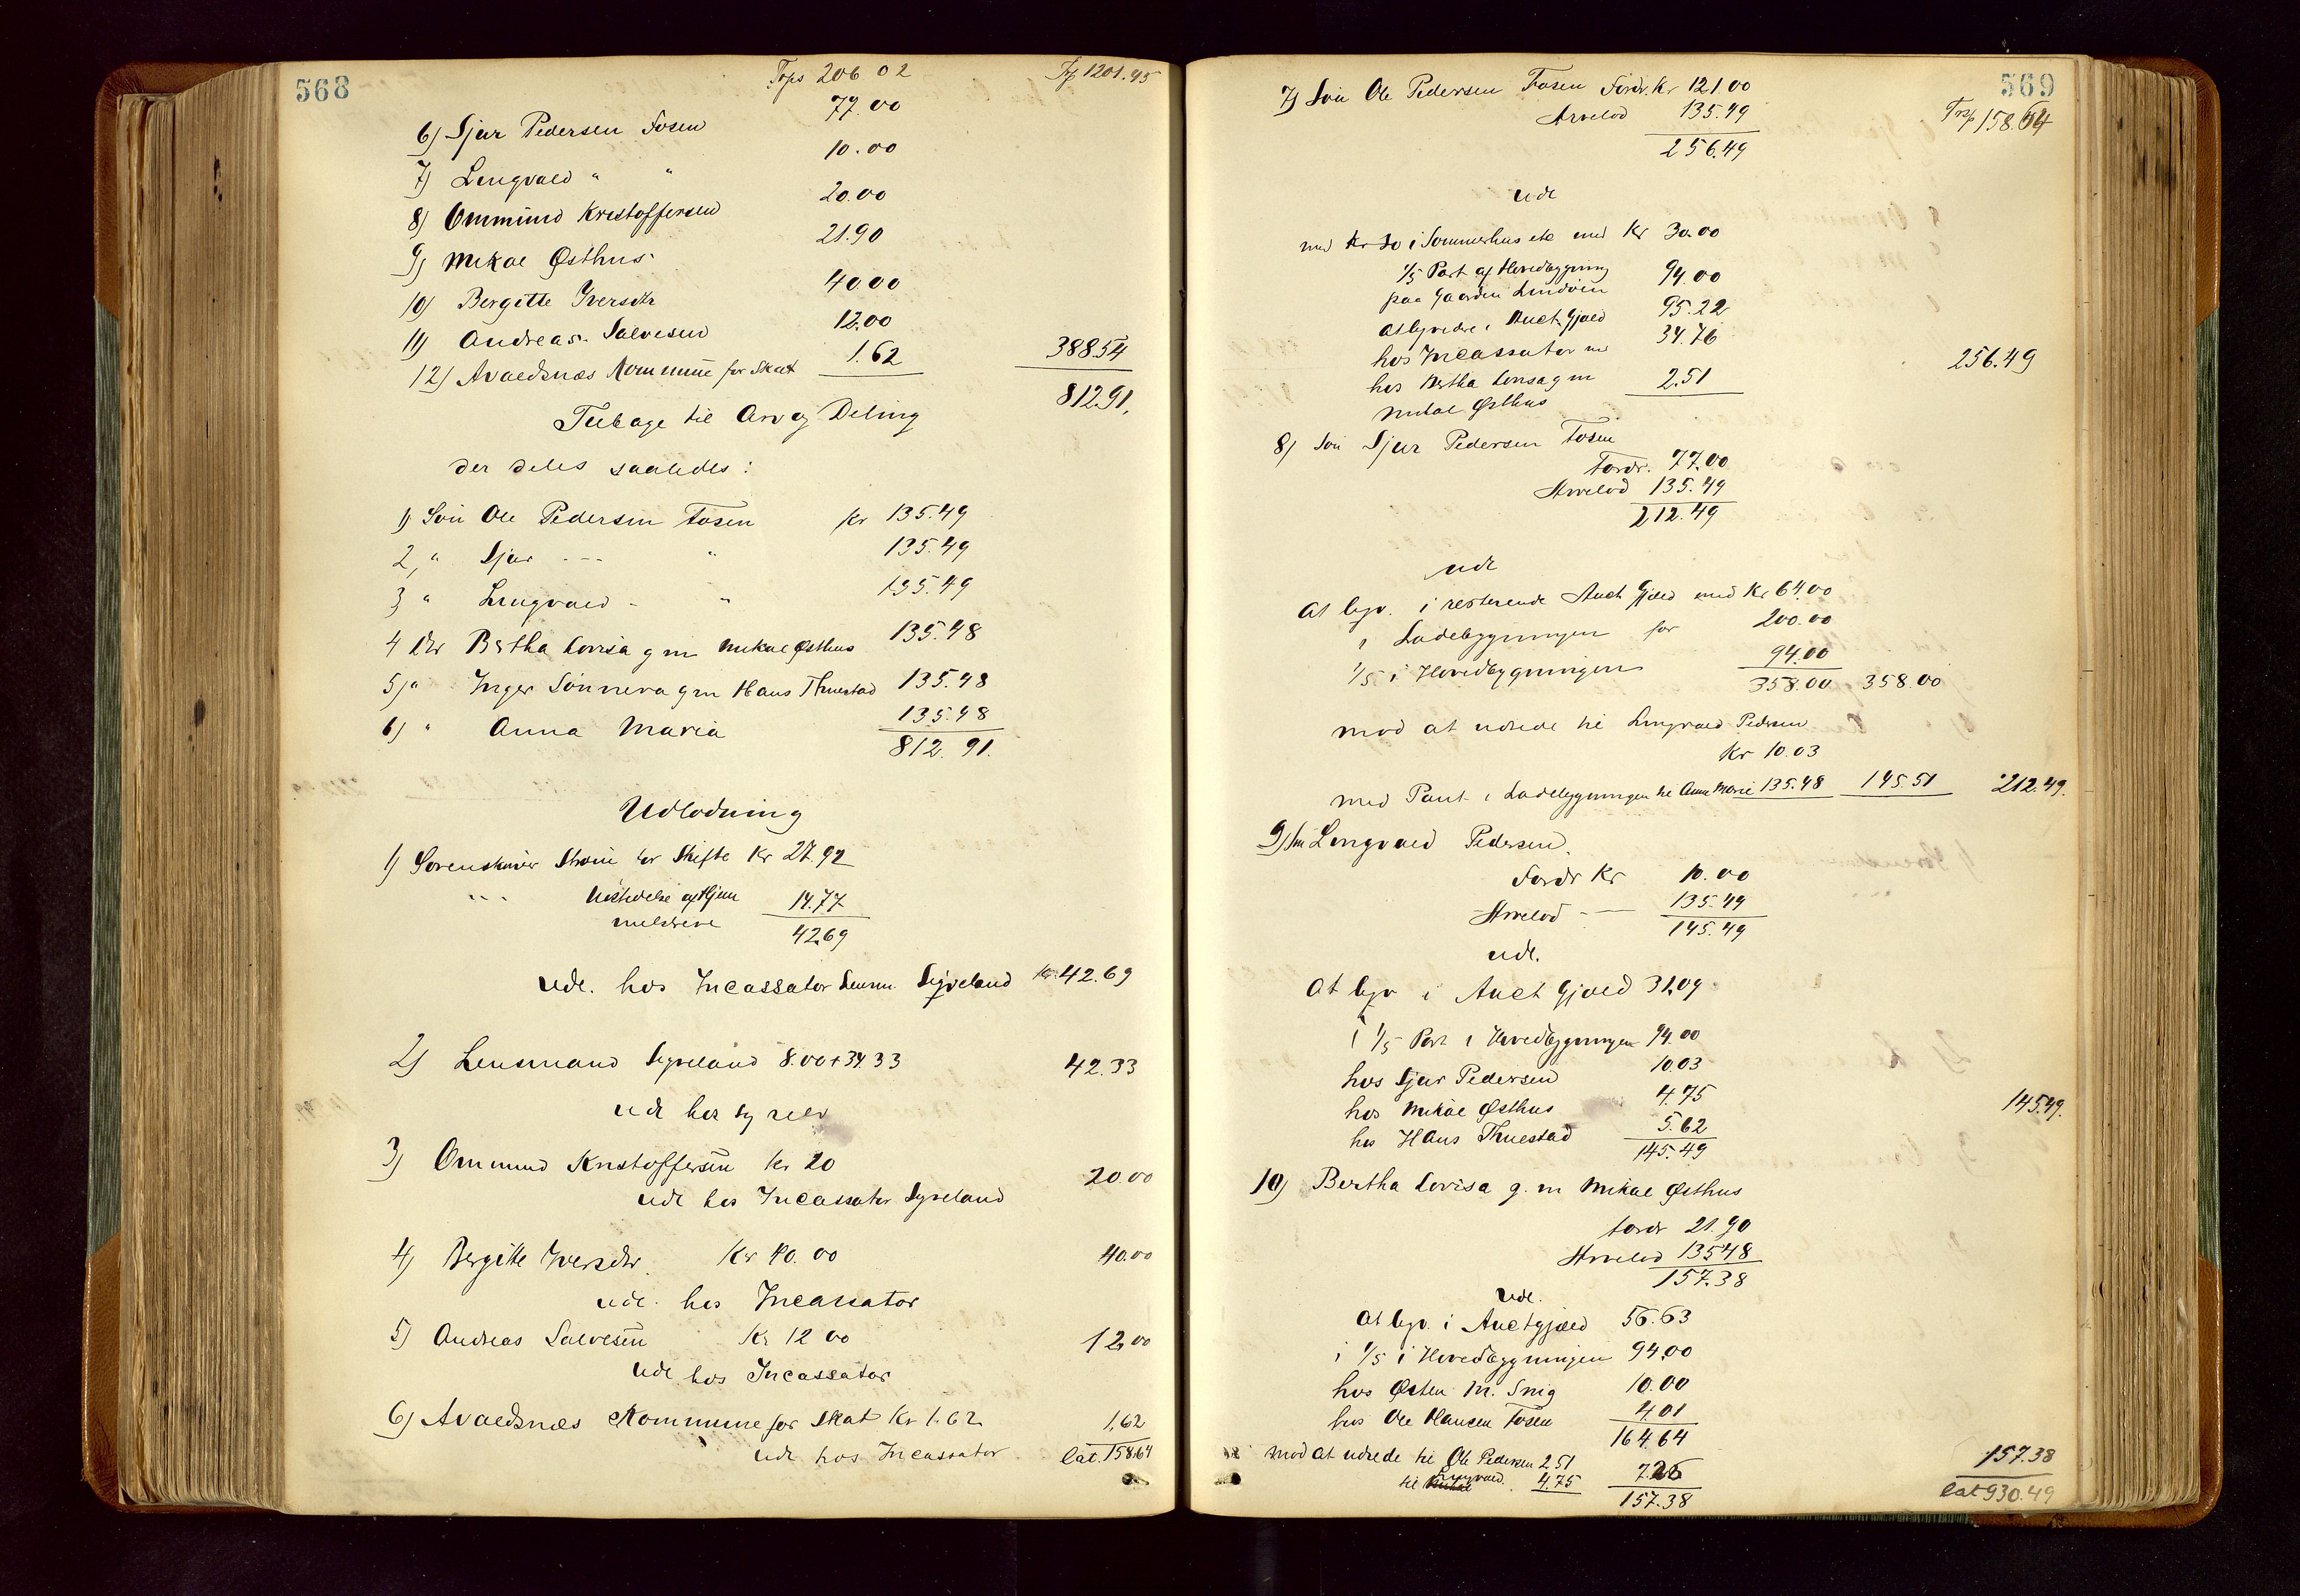 568
Tsp 206 02 Tsp 1201.45
6) Sjur Pedersen Fosen 77.00
7) Lengvald " " 10.00
8) Ommund Kristoffersen 20.00
9) Mikal Østhus 21.90
10) Bergitte Iversdtr 40.00
11) Andreas Salvesen 12.00
12) Avaldsnæs Kommune for Skat 1.62 388.54
Tilbage til Arv og Deling 812.91.
der deles saaledes:
1) Søn Ole Pedersen Fosen Kr 135.49
2, " Sjur - - - " 135.49
3 " Lengvald - " 135.49
4 Dtr Bertha Lovisa g m Mikal Østhus 135.48
5) " Inger Sønneva g m Hans Thuestad 135.48
6) " Anna Maria 135.48
812.91.
Udlodning
1) Sorenskriver Strøm for Skifte Kr 27.92
" " Udstedelse af Hjem 14.77
melsbreve
42.69
Udl. hos Incassator Lensm. Sygveland Kr. 42.69
2) Lensmand Sygveland 8.00 + 34.33 42.33
Udl hos sig selv
3) Ommund Kristoffersen Kr 20 20.00
Udl hos Incassator Sygveland
4) Bergitte Iversdtr. Kr 40.00 40.00
udl. hos Incassator
5) Andreas Salvesen Kr 12 00 12.00
Udl hos Incassator
6) Avaldsnæs Kommune for Skat Kr 1.62 1,62
Udl hos Incassator Lat. 158.64
569
7) Søn Ole Pedersen Fosen Fordr. Kr 121.00
Arvelod 135.49 Tsp 158.64
256.49
Udl
med Kr 30 i Sommerhus etc med Kr 30.00
1/5 Part af Hovedbygning
paa Gaarden Lindøen 94.00
At lysvdre i Auct. Gjæld 95.22
hos Incassator m 34.76
hos Bertha Lovisa g m 2.51 256.49
Mikal Østhus
8) Søn Sjur Pedersen Fosen
Fordr. 77.00
Arvelod 135.49
212.49
udl
At lgv. i resterende Auct Gjæld med Kr 64.00
i Ladebygningen for 200.00
1/5 i Hovedbygningen 94.00
358.00 358.00
mod at udrede til Lengvald Pedersen
Kr 10.03
med Pant i Ladebygningen til Anna Marie 135.48 145.51 212.49.
9) Søn Lengvald Pedersen.
Fordr Kr 10.00
Arvelod - — 135.49
145.49
udl.
At lgv i Auct Gjæld 31,09
i 1/5 Part i Hovedbygningen 94.00
hos Sjur Pedersen 10.03
hos Mikal Østhus 4.75 145.49.
hos Hans Thuestad 5.62
145.49
10) Bertha Lovisa g. m Mikal Østhus
fordr 21.90
Arvelod 135.48
157.38
Udl.
At lgv. i Auctgjæld 56.63
i 1/5 i Hovedbygningen 94.00
hos Østen M. Snig 10.00
hos Ole Hansen Fosen 4.01
164.64
mod at udrede til Ole Pedersen 2.51 157.38
til Lengvald 4.75 7.26
157.38 Lat 930.49